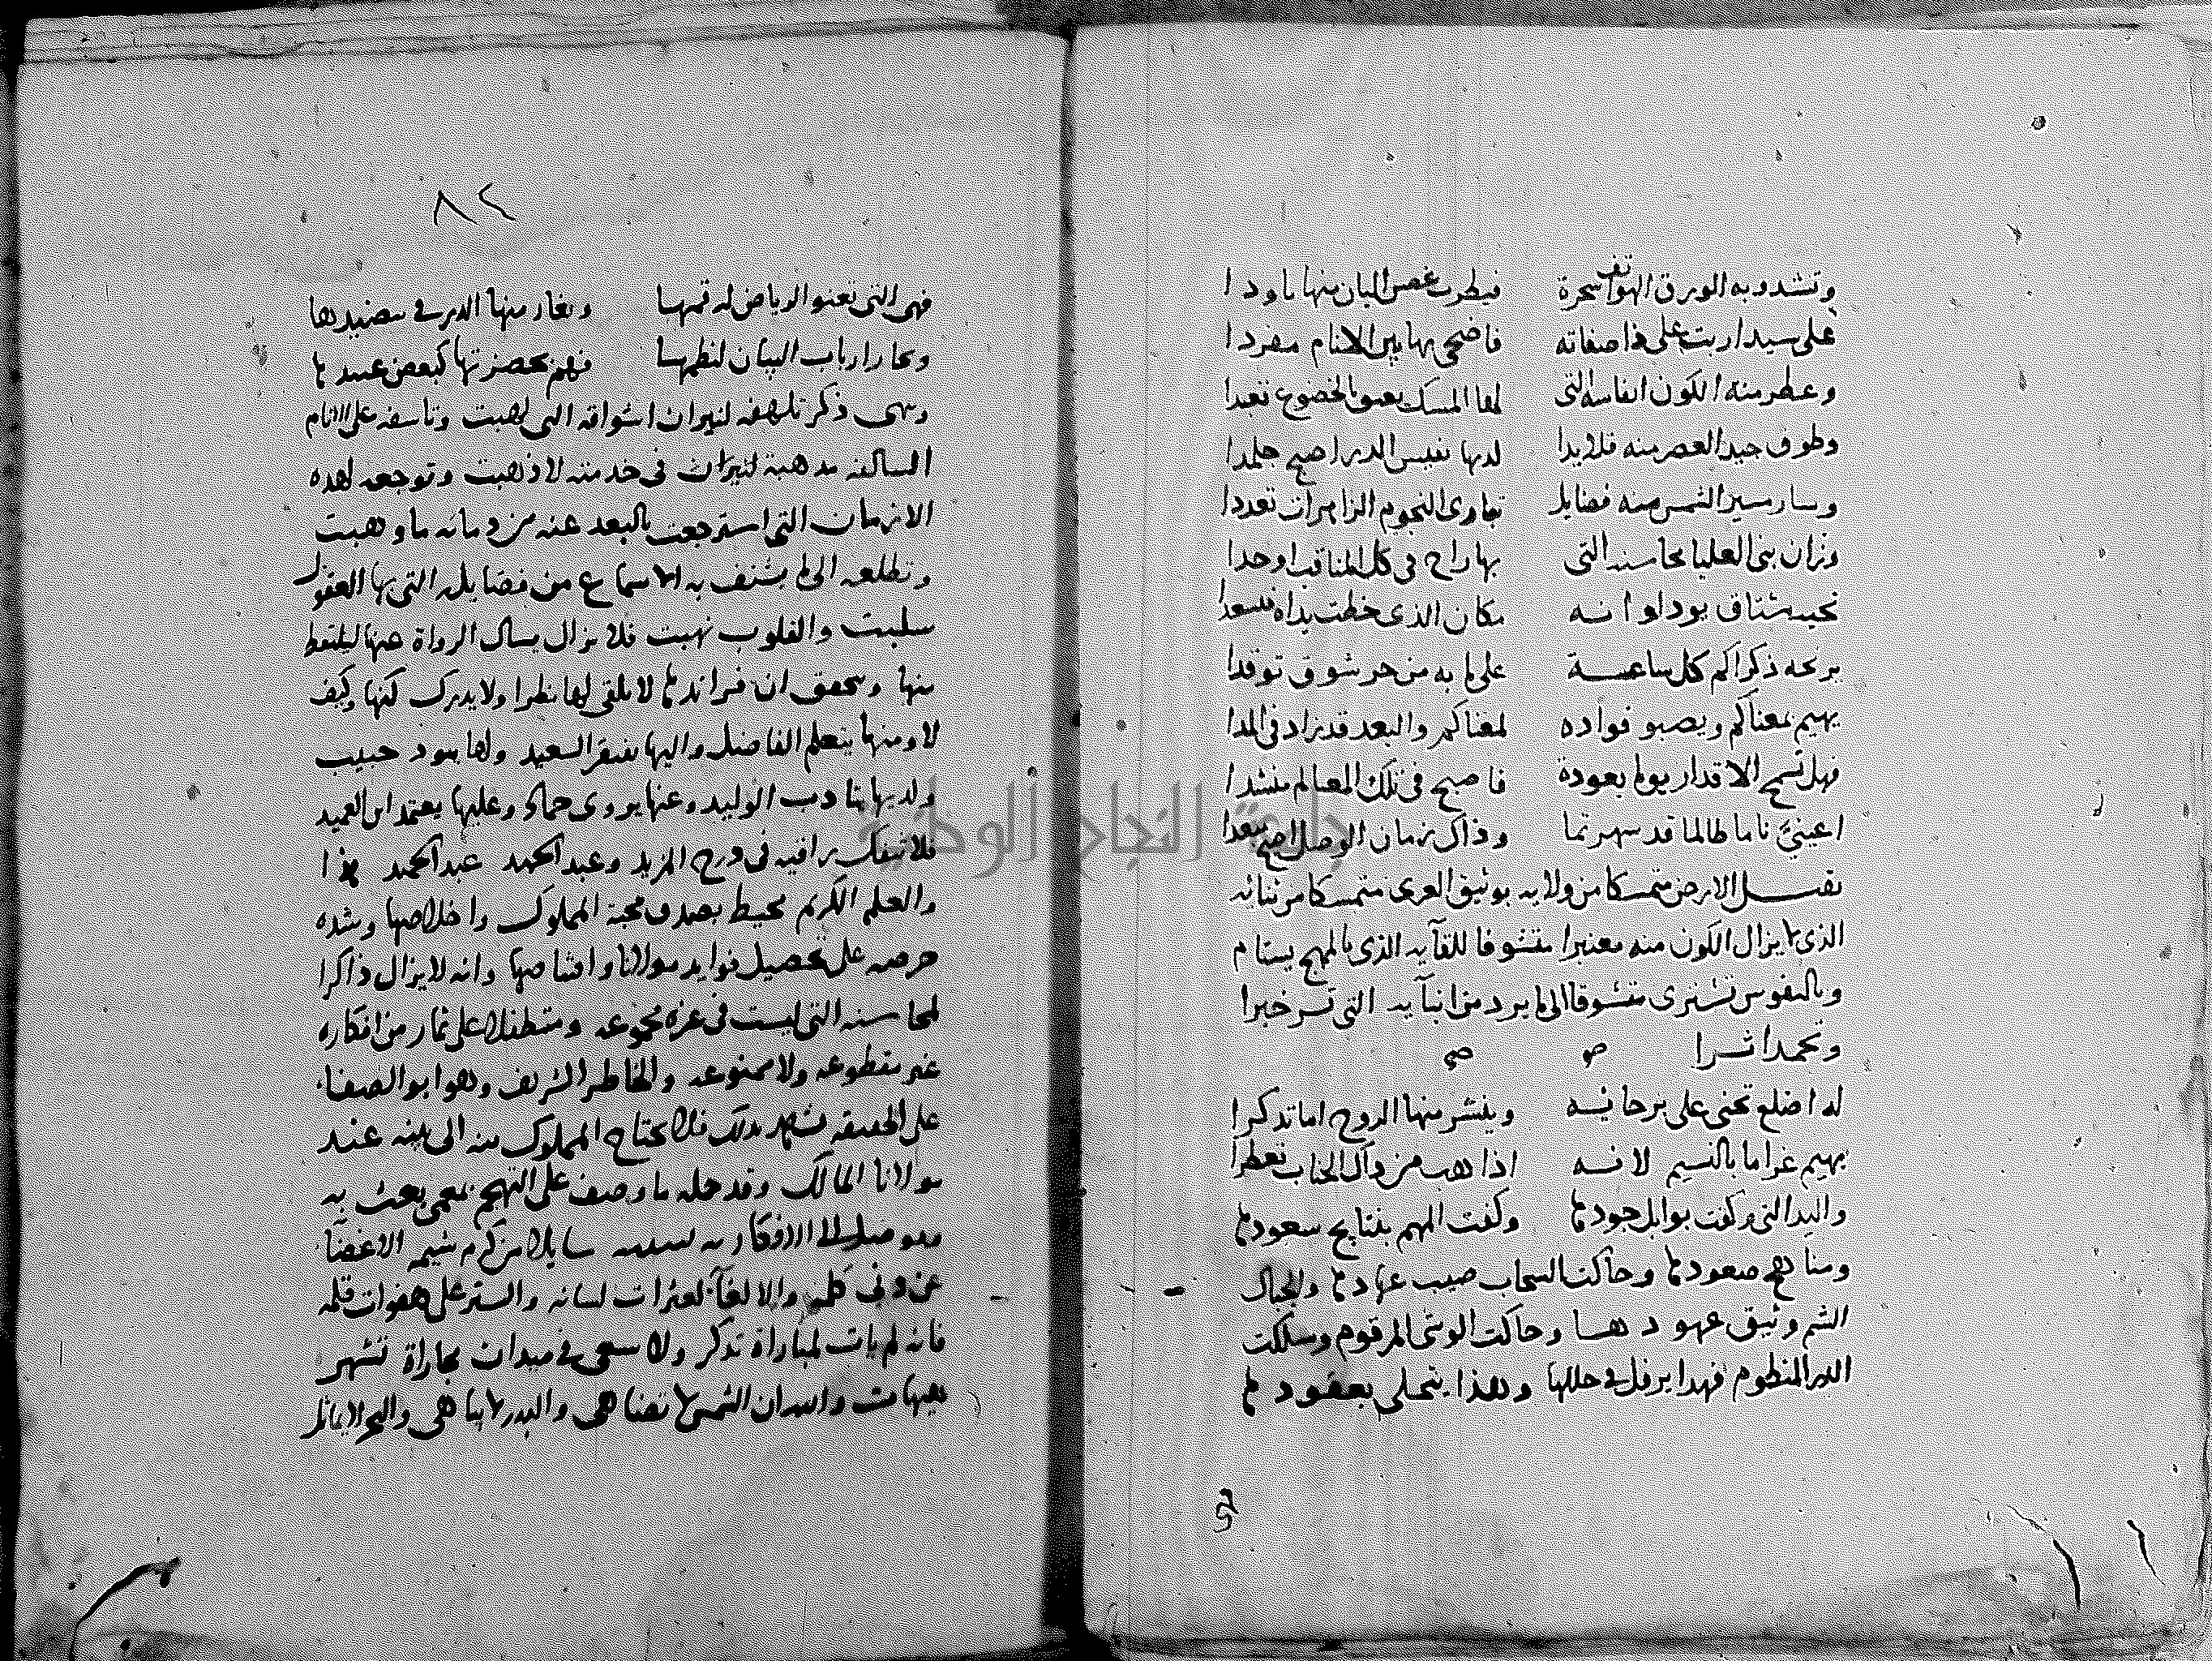 وتشدو به الورق الهواتف سحرة فيطرب غصن البان منها تاودا
على سيد اربت على ذا صفاته فاضحى بها بين الانام مفردا
وعطر منه الكون انفاسه التى لها المسك بالخضوع تعبدا
وطوق جيد العصر منه قلايدا لديها نفيس الدر اصبح جلمدا
وسار مسير الشمس منه فضايل تجارى النجوم الزاهرات تعددا
وزان بنى العليا محاسنه التى بها راح فى كل المناقب اوحدا
تحية مشتاق يود لو انه مكان الذى خطت يداه
يرنحه ذكراكم كل ساعة على ما به من حر شوق توقدا
يهيم بمعناكم ويصبو فواده لمغناكم والبعد قد زاد فى المدا
فهل تسمح الاقدار يوما بعودة فاصبح فى تلك المعالم منشدا
اعينيّ ناما طالما قد سهرتما وذاك زمان الوصل اصبح مبعدا
يقبل الارض متمسكا من ولايه بوثيق العرى متمسكا من ثنائه
الذى لا يزال الكون منه معنبرا متشوفا للقآيه الذى بالمهج يستام
وبالنفوس تشترى متشوقا الى ما يرد من انبآيه التى تسر خبرا
وتحمد اثرا
له اضلع تحنى على برحائه وينشر منها الروح اما تذكرا
يهيم غراما بالنسيم لانه اذا هب من ذاك الجناب تعطرا
واليد التى وكفت بوابل جودها وكفت المهم بنتايج سعودها
ومناهج صعودها وحاكت السحاب صيب عهادها والجبال
الشم وثيق عهودها وحاكت الوشى المرقوم وسلكت
الدر المنظوم فهذا يرفل فى حللها وهذا يتحلى بعقودها
٨٢
فهى التى تعنو الرياض لرقمها ويغار منها الدر فى تنضيدها
وتحار ارباب البيان لنظمها فهم بحضرتها كبعض عبيدها
وينهى ذكر تلهفه لنيران اشواقه التى لهبت وتاسفه على الايام
السالفه مذهبة لنيرات فى خدمته لا ذهبت وتوجعه لهذه
الازمان التى استرجعت بالبعد عنه من زمانه ما وهبت
وتطلعه الى ما يشنف به الاسماع من فضايله التى بها العقول
سلبت والقلوب نهبت فلا يزال يسال الرواة عنها ليلتقط
منها ويتحقق ان فرائدها لا يلقى لها نظرا ولا يدرك كنهها وكيف
لا ومنها يتعلم الفاضل واليها يفتقر السعيد ولها يسود حبيب
ولديها يتادب الوليد وعنها يروى حماد وعليها يعتمد ابن العميد
فلا تنفك راقيه فى درج المزيد وعبد الحميد عبد الحميد هذا
والعلم الكريم محيط بصدق محبة المملوك واخلاصها وشده
حرصه على تحصيل فوايد مولانا واقتناصها وانه لا يزال ذاكرا
لمحاسنه التى ليست فى غيره مجموعه ومتطفلا على ثمار من افكاره
غير مقطوعه ولا ممنوعه والخاطر الشريف وهو ابو الصفاء
على الحقيقه شهد بذلك فلا يحتاج المملوك منه الى بينه عند
مولانا المالك وقد حله ما وصف على التهجم بمعمى بعث به
سايلا من كرم شيمه الاغضآء
عن كلمه والالغآء لعثرات لسانه والستر على هفوات قلمه
فانه لم يات لمباراة تذكر ولا سعى فى ميدان مجاراة تشهر
هيهات والله ان الشمس لا تضاهى والبدر لا يباهى والبحر لا يماثل
جامعة النجاح الوطنية